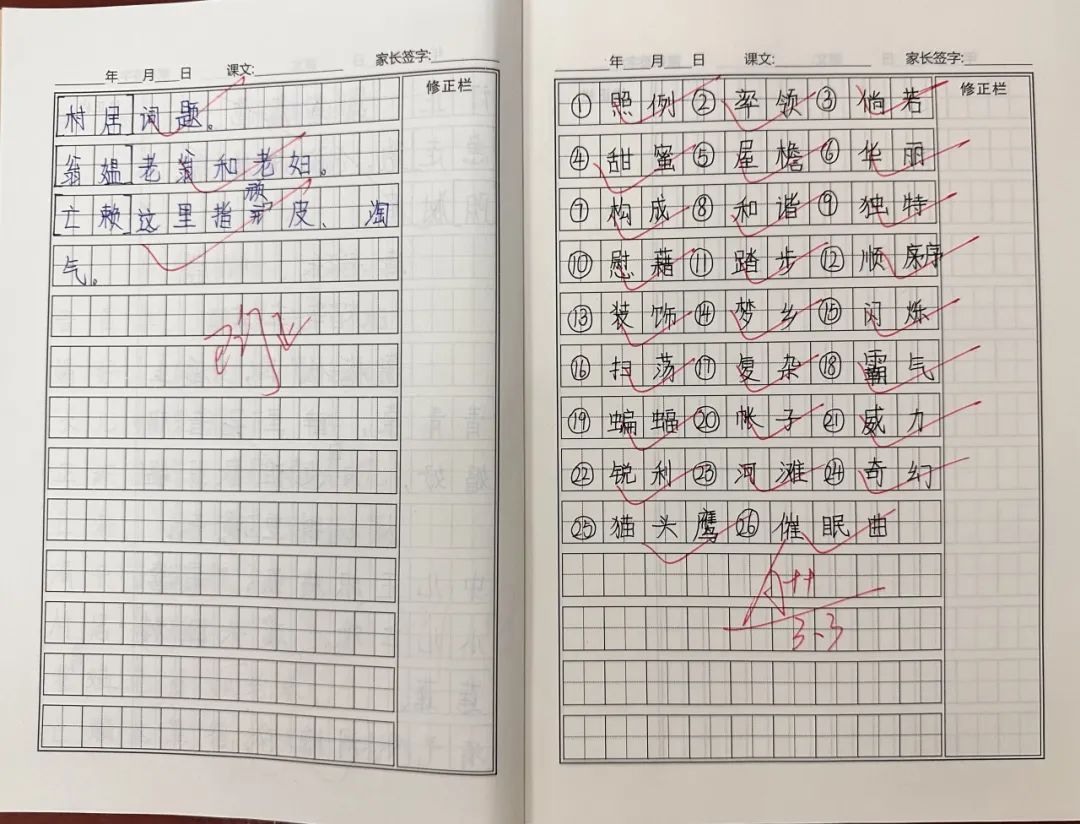 年 月 日 课文: 家长签字:
修正栏
[村居]词题。
[翁媪]老翁和老妇。
[亡赖]这里指顽皮、淘
气。
年 月 日 课文: 家长签字:
修正栏
①照例②率领③倘若
④甜蜜⑤屋檐⑥华丽
⑦构成⑧和谐⑨独特
⑩慰藉⑪踏步⑫顺序
⑬装饰⑭梦乡⑮闪烁
⑯扫荡⑰复杂⑱霸气
⑲蝙蝠⑳帐子㉑威力
㉒锐利㉓河滩㉔奇幻
㉕猫头鹰㉖催眠曲
A++
3.3